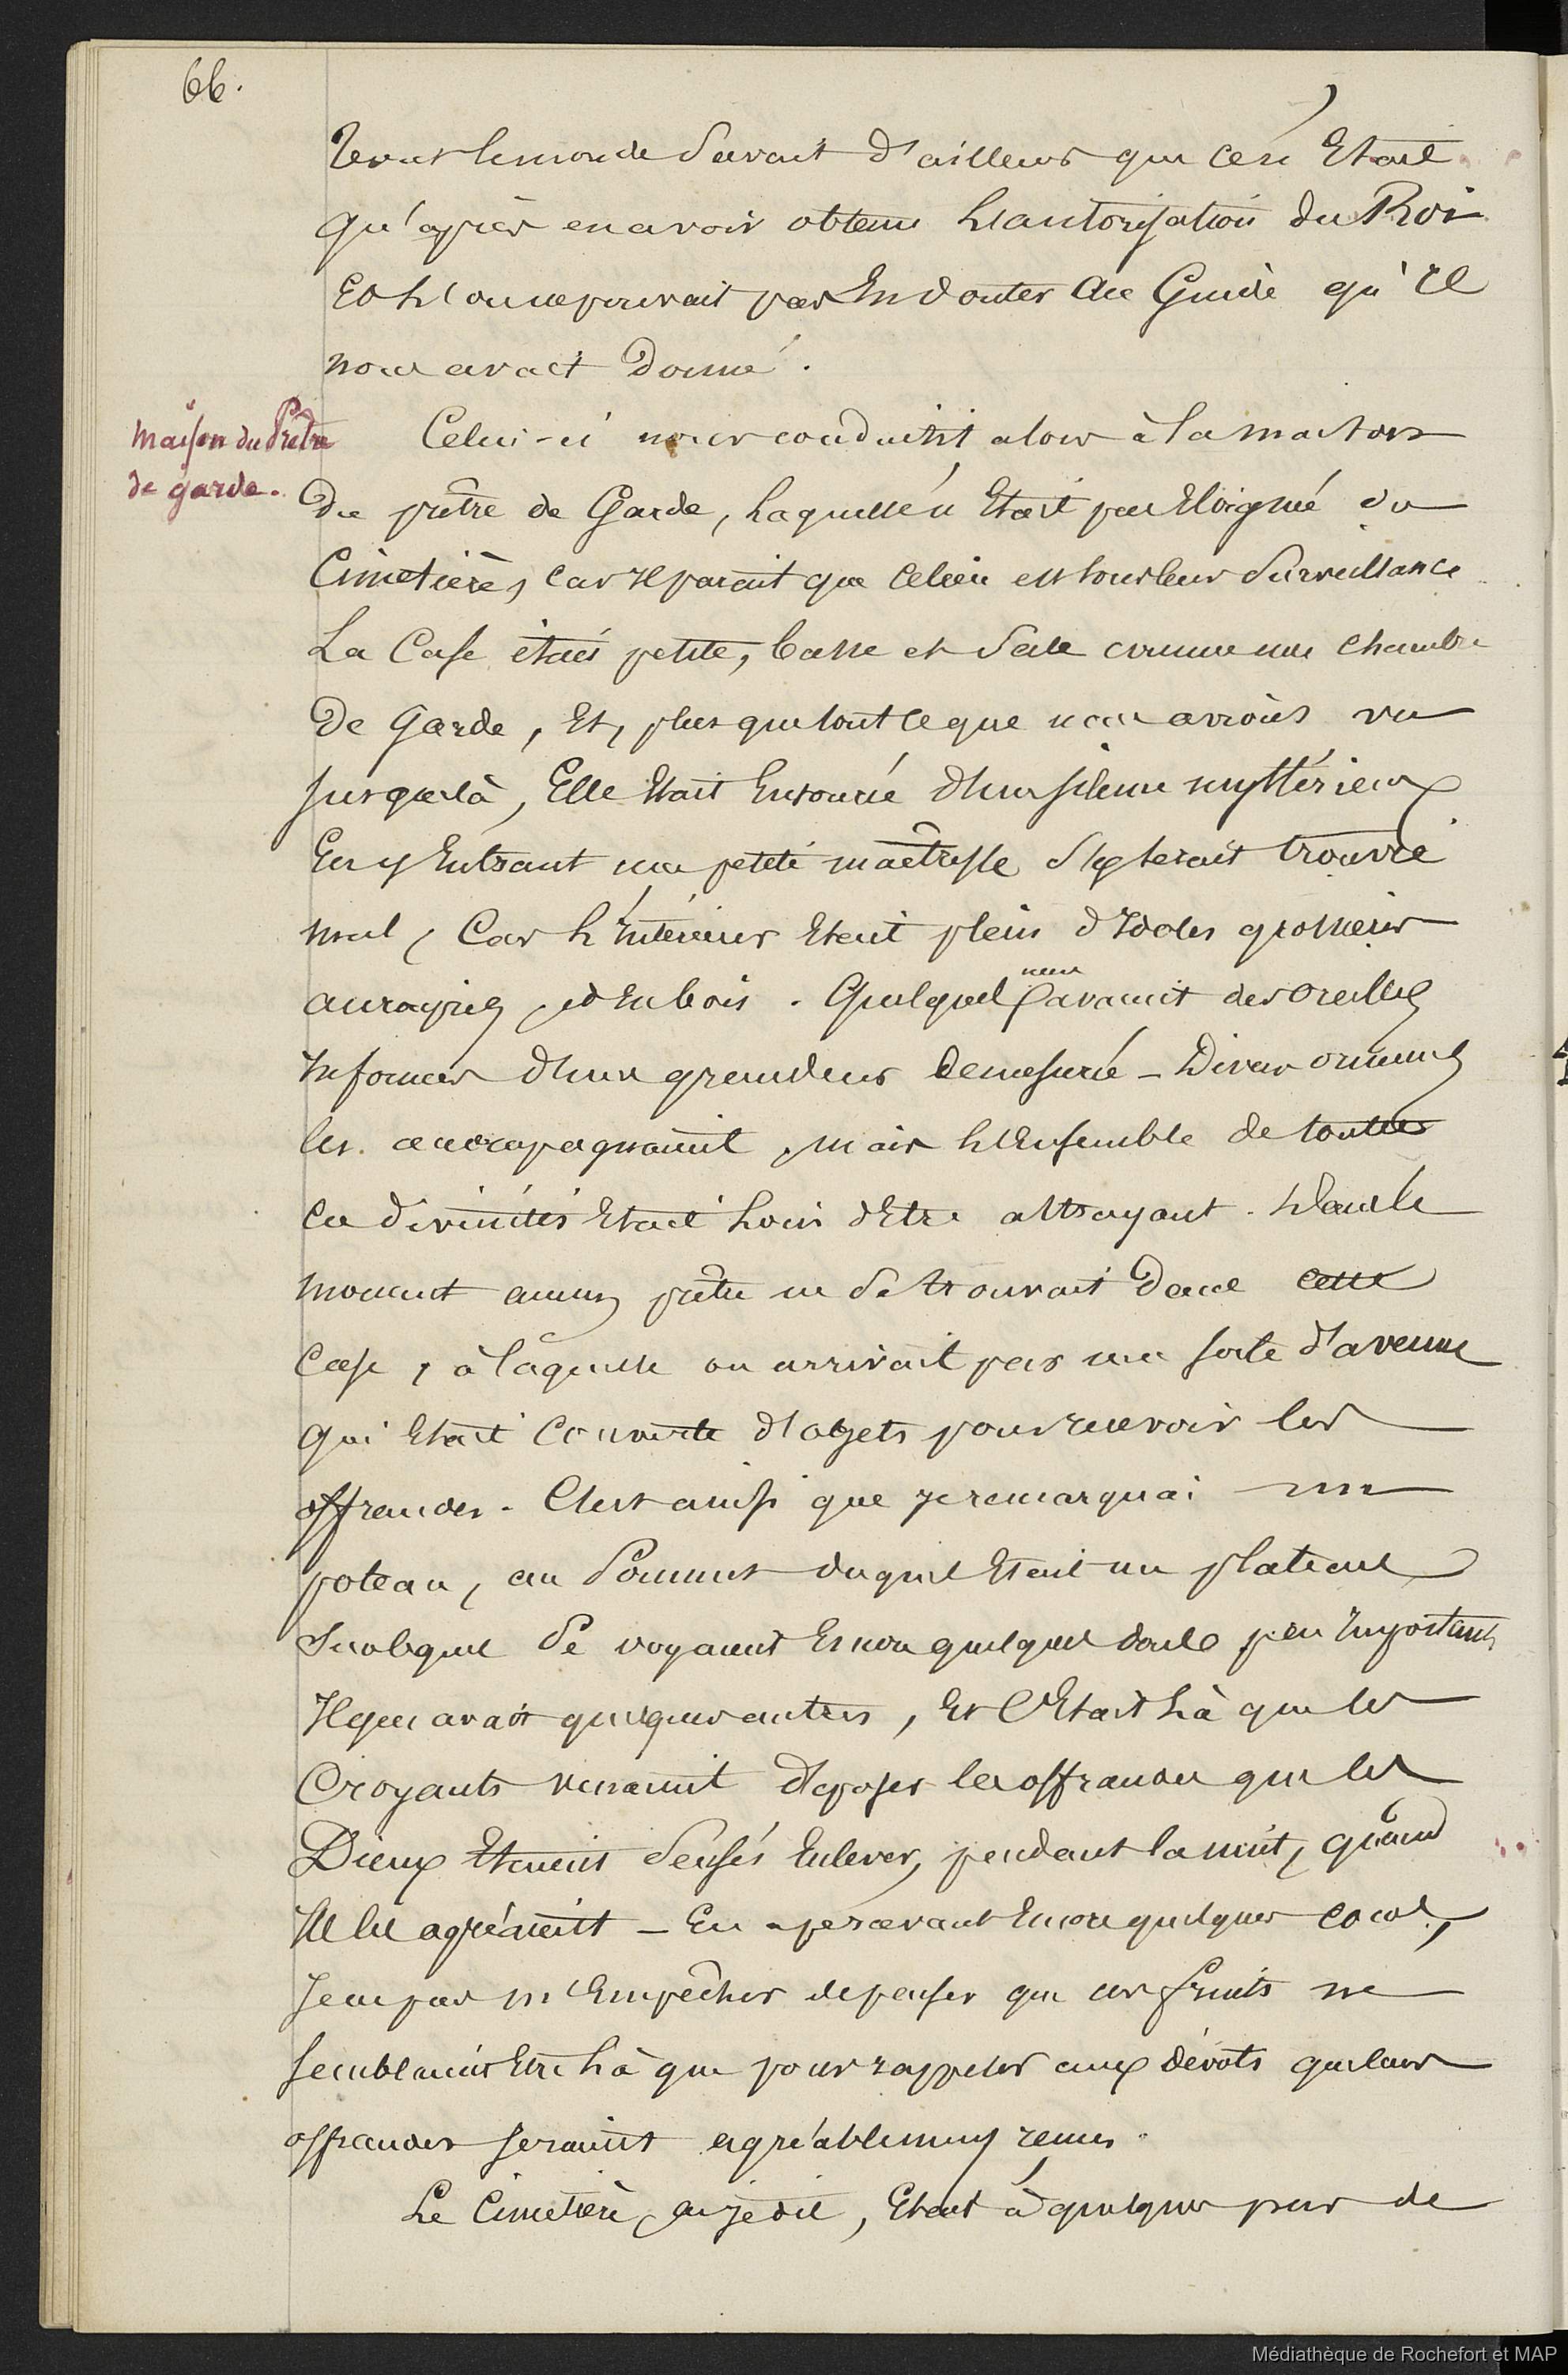 66.
Tout le monde Savait d'ailleurs que ce n'Etait
qu'après en avoir obtenu l'autorisation du Roi
Et l'on ne pouvait pas En douter Au Guide qu'Il
nous avait Donné.
Maison du Prêtre
de garde.
Celui-ci nous conduisit alors à la maison
Du prêtre de Garde, Laquelle n'Etait peu Eloigné du
Cimetière, car Il parait que Celui-ci est sous leur Surveillance
La Case était petite, basse et Sale comme une chambre
De Garde, Et, plus que tout ce que nous avions vu
jusque là, Elle Etait Entourée d'un silence mystérieux
En y Entrant une petite maîtresse s'y serait trouvée
mal, Car l'Intérieur Etait plein d'Idoles grossières
accroupies, et En bois. Quelques unes avaient des oreilles
Informes d'une grandeur demesurée - Divers ornements
les accompagnaient, mais l'Ensemble de toutes
ces divinités Etait Loin d'Etre attrayant. Dans le
moment aucun prêtre ne se trouvait Dans cette
Case, à laquelle on arrivait par une sorte d'avenue
qui Etait Couverte d'objets pour recevoir les
offrandes. C'est ainsi que je remarquai un
poteau, au Sommet duquel Etait un plateau
Sur lequel Se voyaient Encore quelques dons peu Importants
Il y en avait quelques autres, Et C'Etait Là que les
Croyants venaient déposer les offrandes que les
Dieux Etaient Sensés Enlever, pendant la nuit, quand
Ils les agréaient - En apercevant Encore quelques cocos,
Je ne pus m'Empêcher de penser que ces fruits ne
semblaient Etre Là que pour rappeler aux dévots que leurs
offrandes seraient agréablement reçues.
Le Cimetière, ai-je dit, Etait à quelques pas de
Médiathèque de Rochefort et MAP